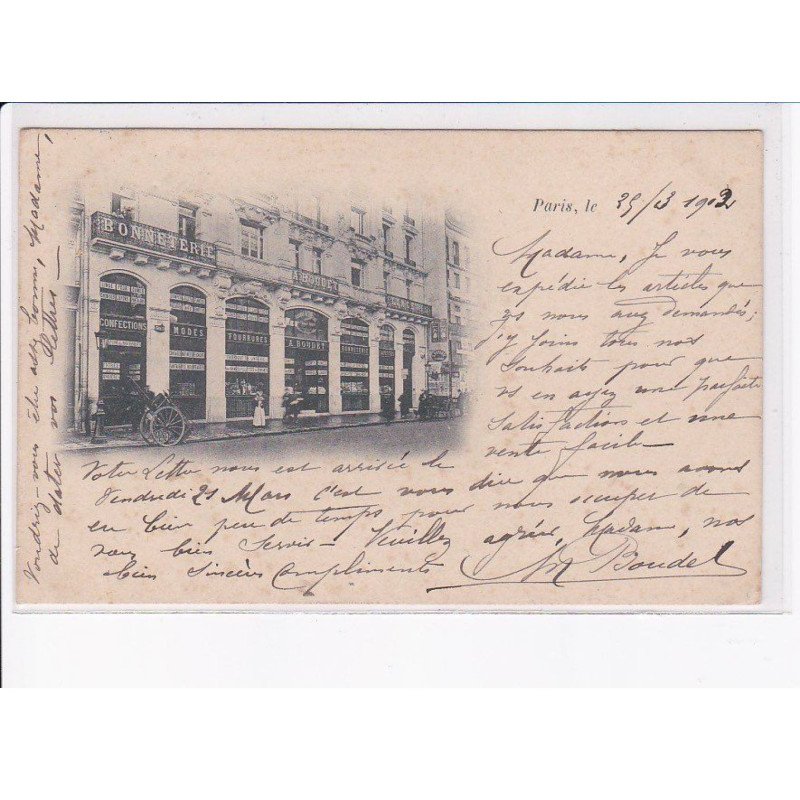 BONNETERIE
A. BOUDET
CONFECTIONS
MODES
FOURRURES
A. BOUDET
BONNETERIE
Paris, le 25/3 1902
Madame, Je vous
expédie les articles que
vs nous avez demandés;
j'y joins tous nos
souhaits pour que
vs en ayez une parfaite
satisfaction et une
vente facile
Votre Lettre nous est arrivée le
Vendredi 21 Mars c'est vous dire que nous avons
eu bien peu de temps pour nous occuper de
vous bien servir - Veuillez agréer, Madame, nos
bien sincères Compliments
A Boudet
Voudriez-vous être assez bonne, Madame,
de dater vos Lettres -